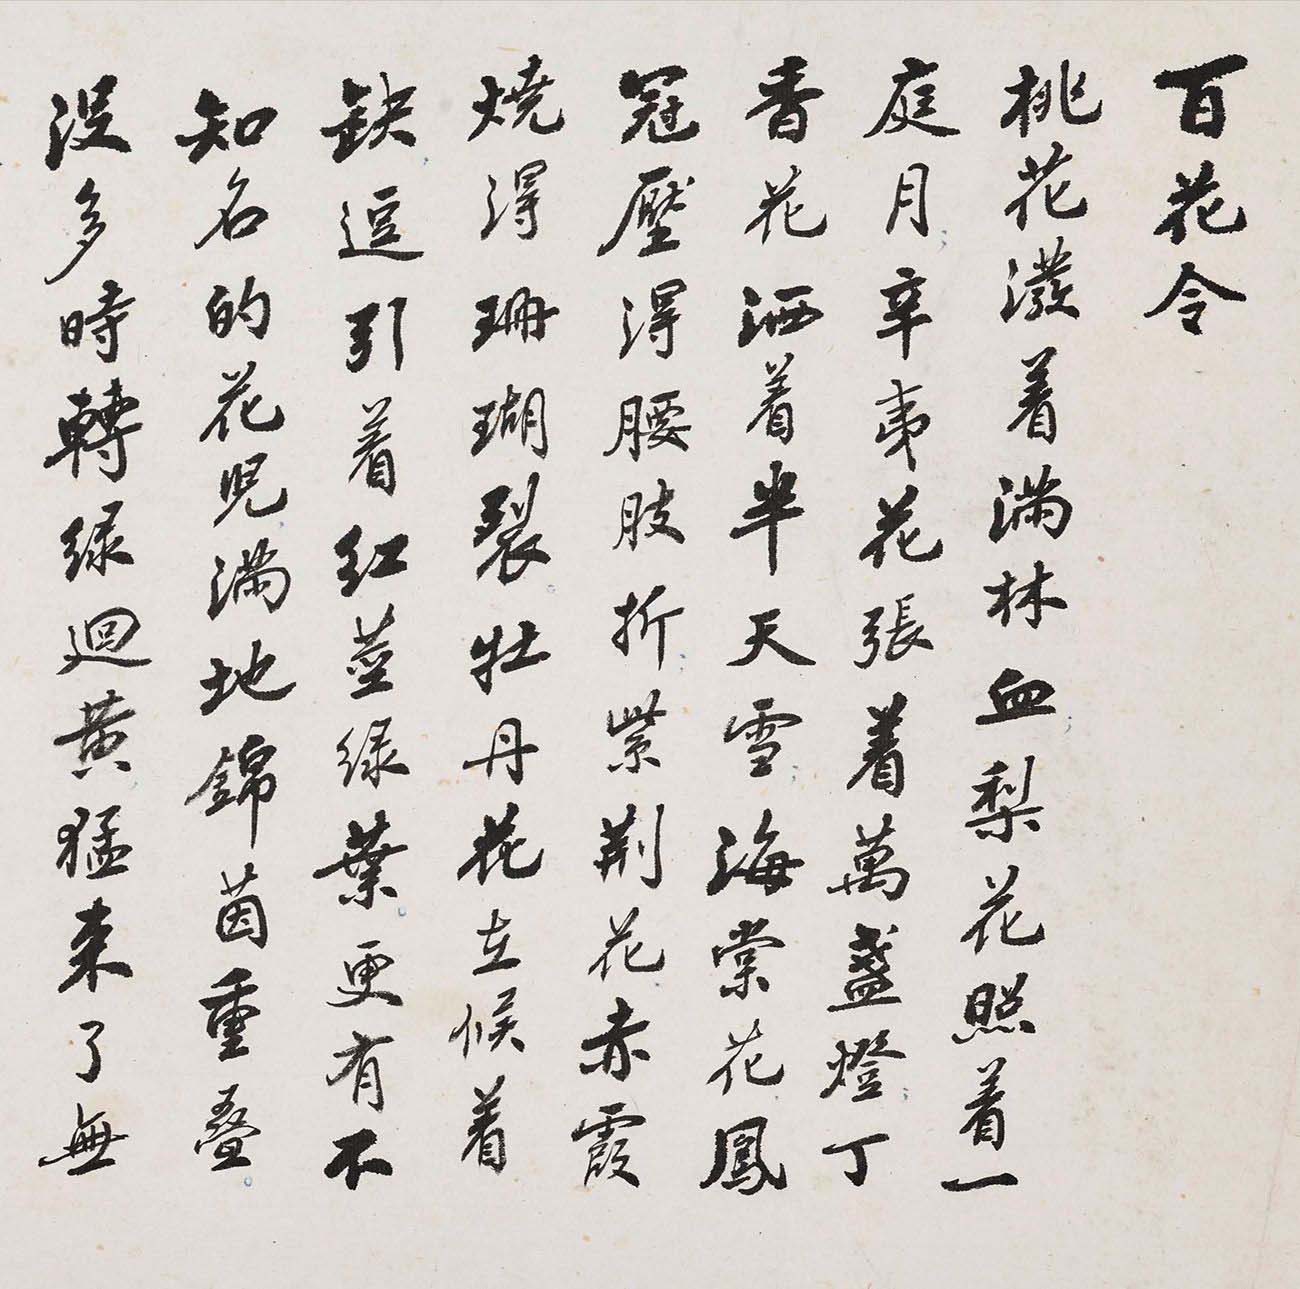 百花令
桃花潑着滿林血梨花照着一
庭月辛夷花張着萬盞燈丁
香花洒着半天雪海棠花鳳
冠壓得腰肢折紫荆花赤霞
燒得珊瑚裂牡丹花立候着
缺逗引着紅藍綠葉更有不
知名的花兒滿地錦茵重疊
没多時轉綠迴黄猛来了無